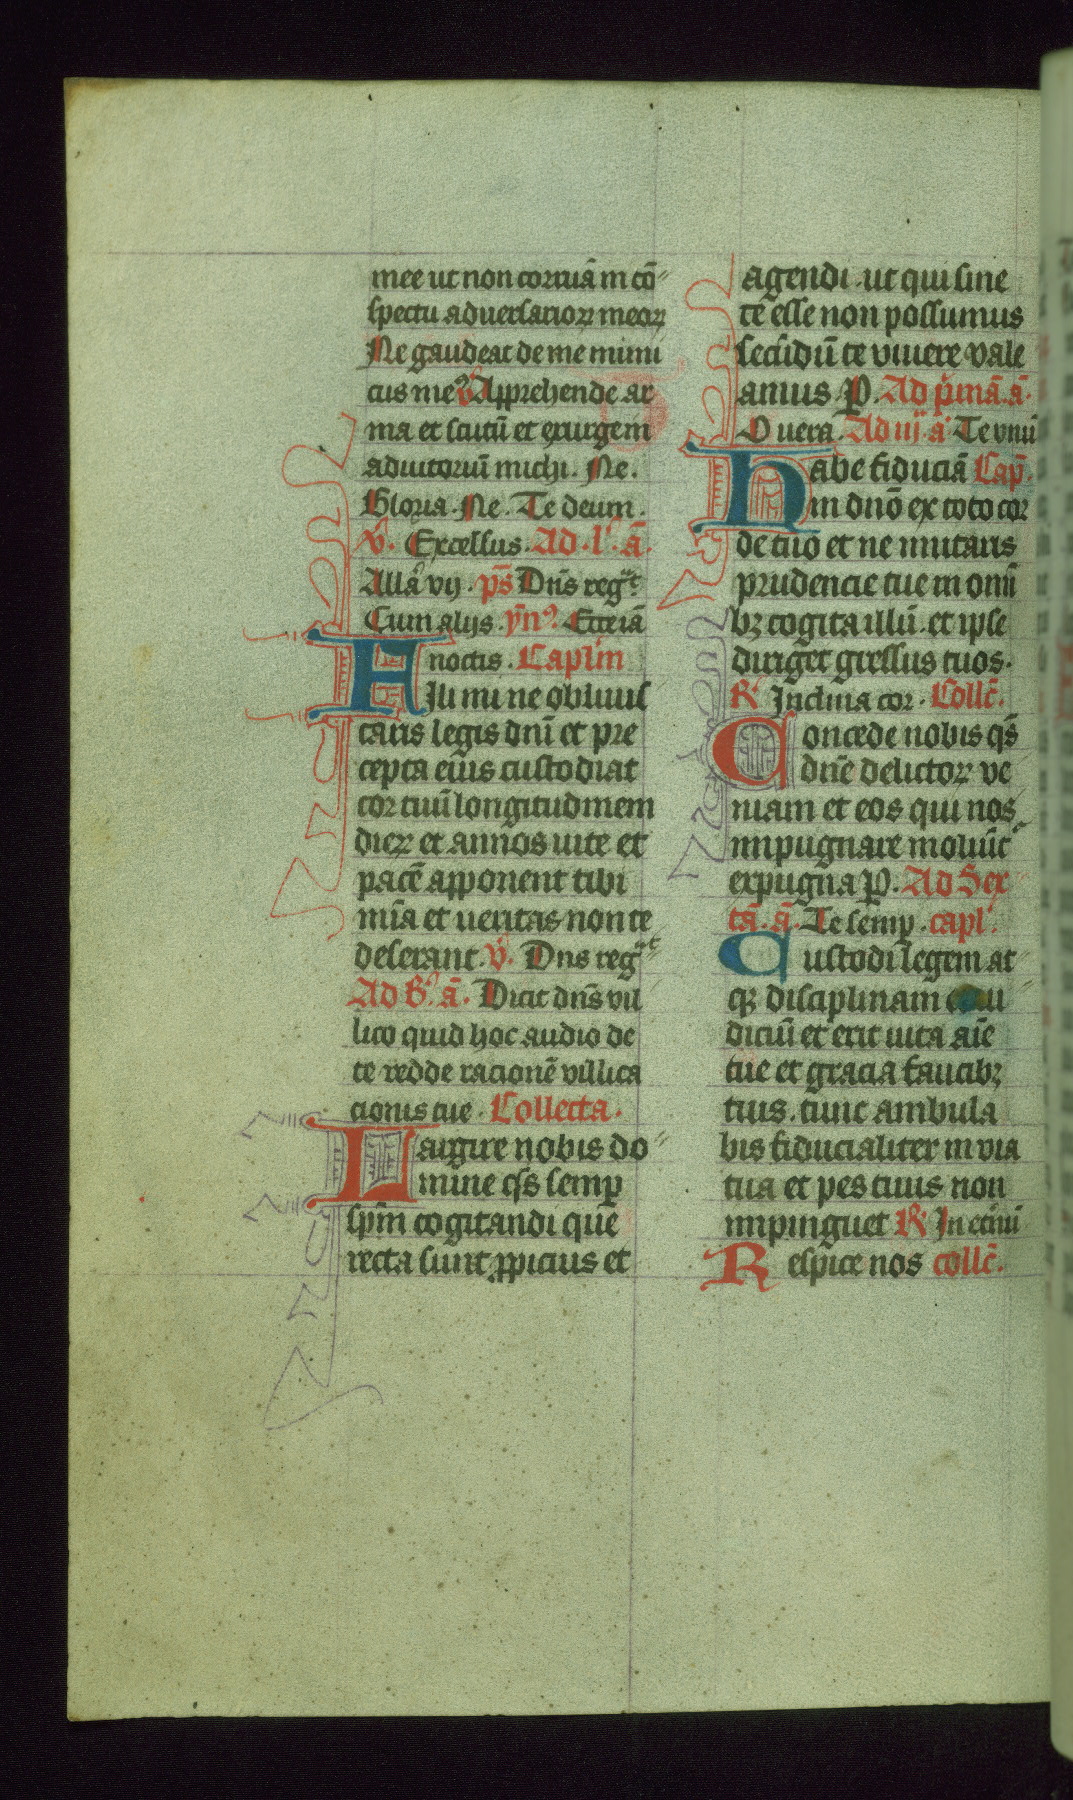 mee ut non corruā in cō
spectu aduersarioꝝ meoꝝ
Ne gaudeat de me inimi
cus meꝰ v̓ Apprehende ar
ma et scutū et exurge in
adiutoriū michi. Ne.
Gloria. Ne. Te deum.
v̓. Excelsus. Ad .l'. ā.
Alla vij. ps̄ Dn̄s reg
Cum alijs. yn̄ꝰ. Ecce iā
noctis. Capl'm
Fili mi ne obliuis
caris legis dn̄i et pre
cepta eius custodiat
cor tuū longitudinem
dieꝝ et annos uite et
pacē apponent tibi
mīa et ueritas non te
deserant. v̓. Dns reg
Ad b̓. ā. Dicit dn̄s vil
lico quid hoc audio de
te redde racionē villica
cionis tue. Collecta.
Largire nobis do
mine qs̄s semꝑ
spm̄ cogitandi que
recta sunt ꝓpicius et
agendi. ut qui sine
te esse non possumus
secūdū te viuere vale
amus. P. Ad p̓mā. ā.
O uera. Ad iij. a Te vnū
Habe fiduciā Cap̄.
in dnō ex toto cor
de tuo et ne innitaris
prudencie tue in omī
bꝫ cogita illū. et ipse
diriget gressus tuos.
R̓ Inclina cor. Collc̄.
Concede nobis qs̄
dnē delictoꝝ ve
niam et eos qui nos
inpugnare moliūt
expugna P. Ad Sex
tā. ā. Te semp. capl'.
Custodi legem at
qꝫ disciplinam
diciū et erit uita aīe
tue et gracia faucibꝫ
tuis. tunc ambula
bis fiducialiter in via
tua et pes tuus non
inpinguet R̓ In etnū
Respice nos collc̄.